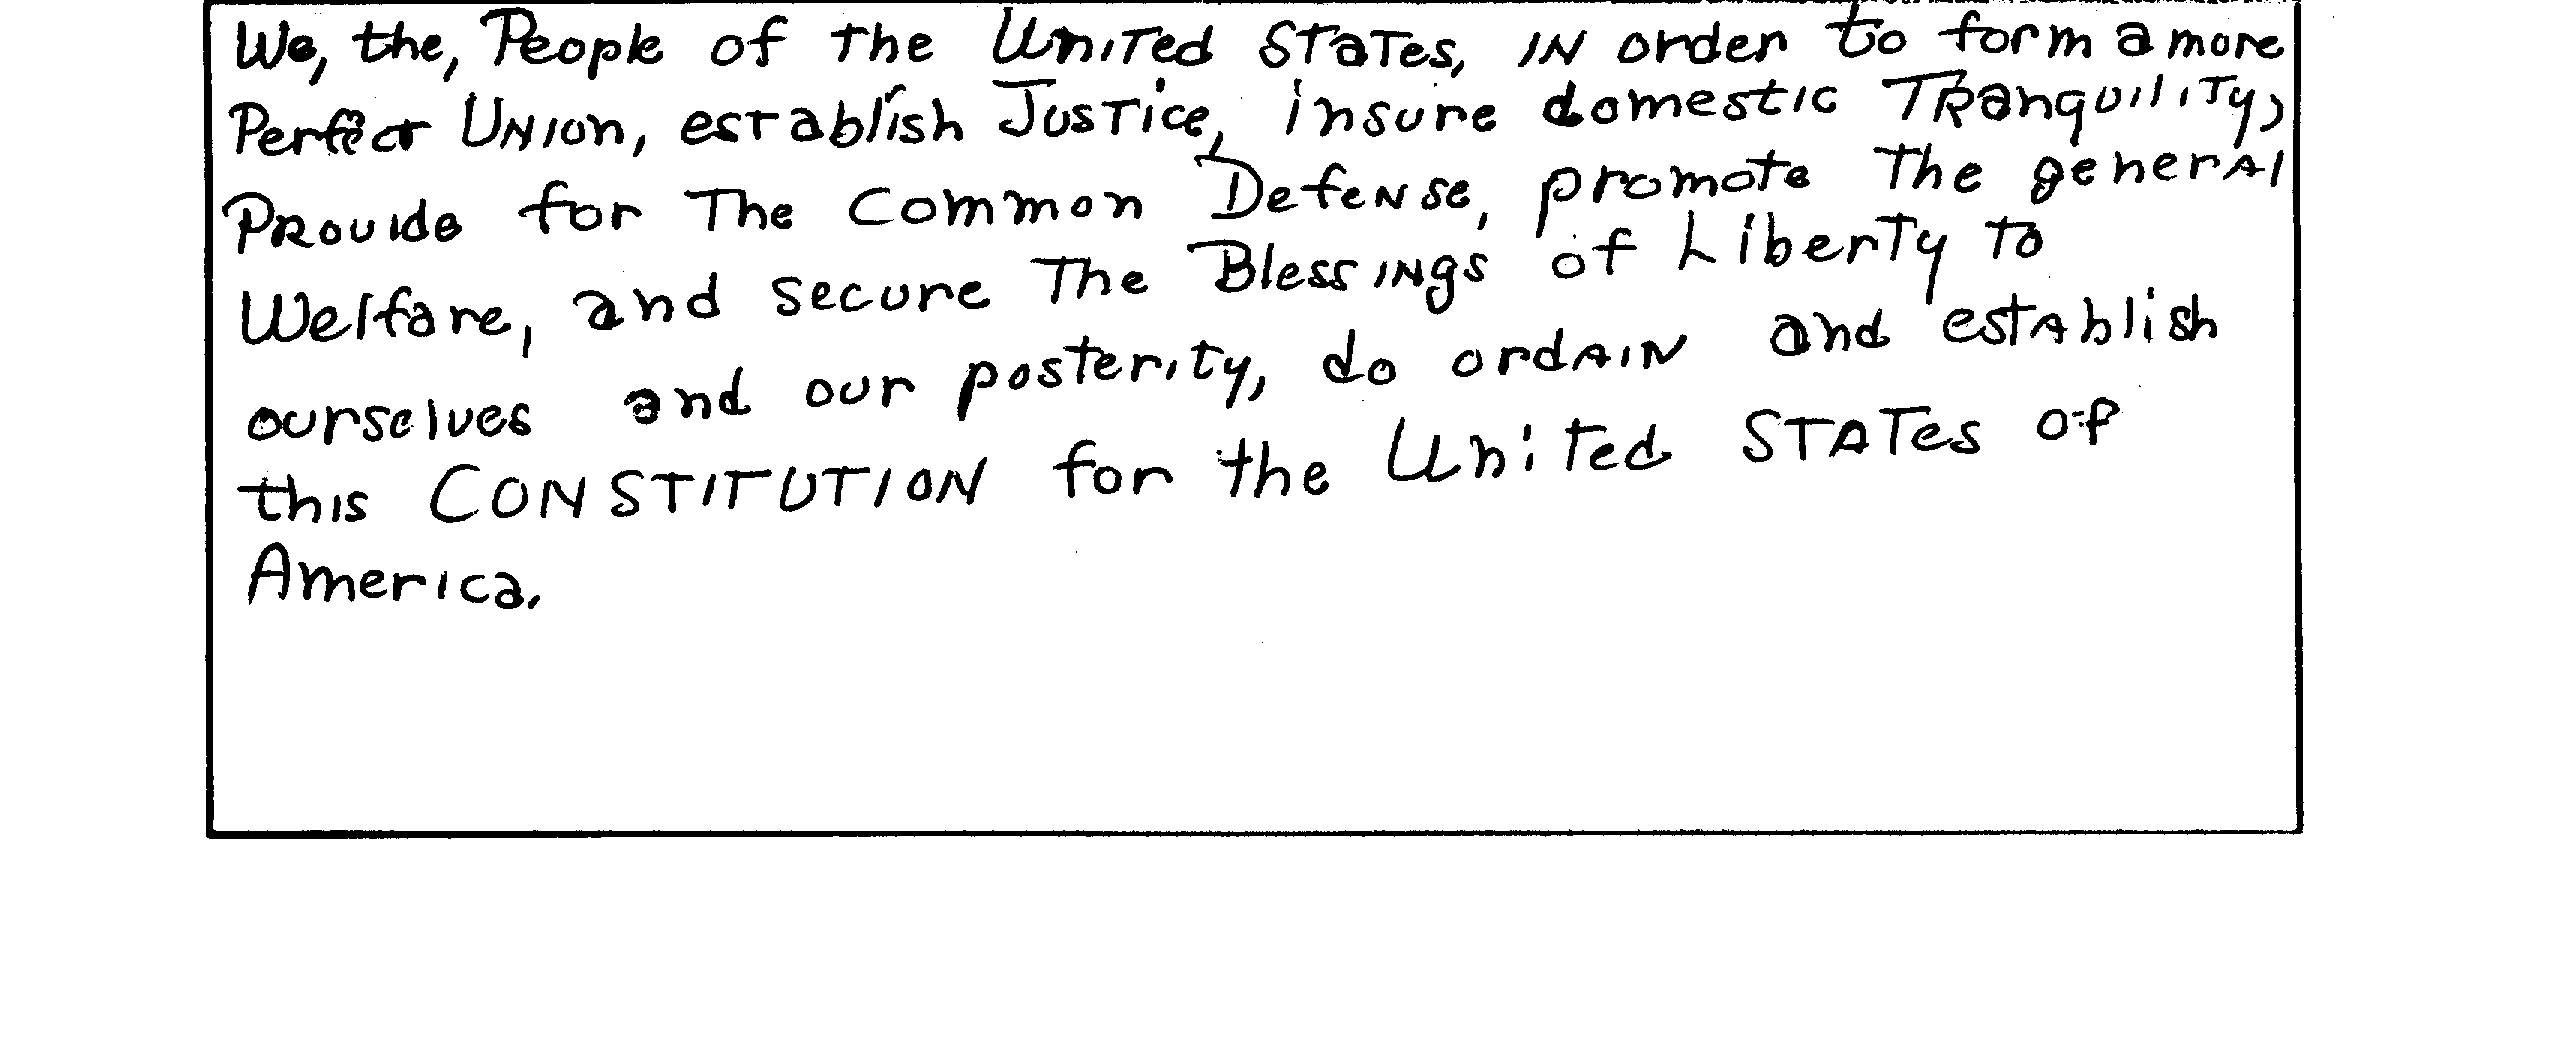 We, the, People of the United States, IN order to form a more
Perfect Union, establish Justice, insure domestic Tranquility,
Provide for The Common Defense, promote The general
Welfare, and secure The Blessings of Liberty to
ourselves and our posterity, do ordain and establish
this CONSTITUTION for the United States of
America.